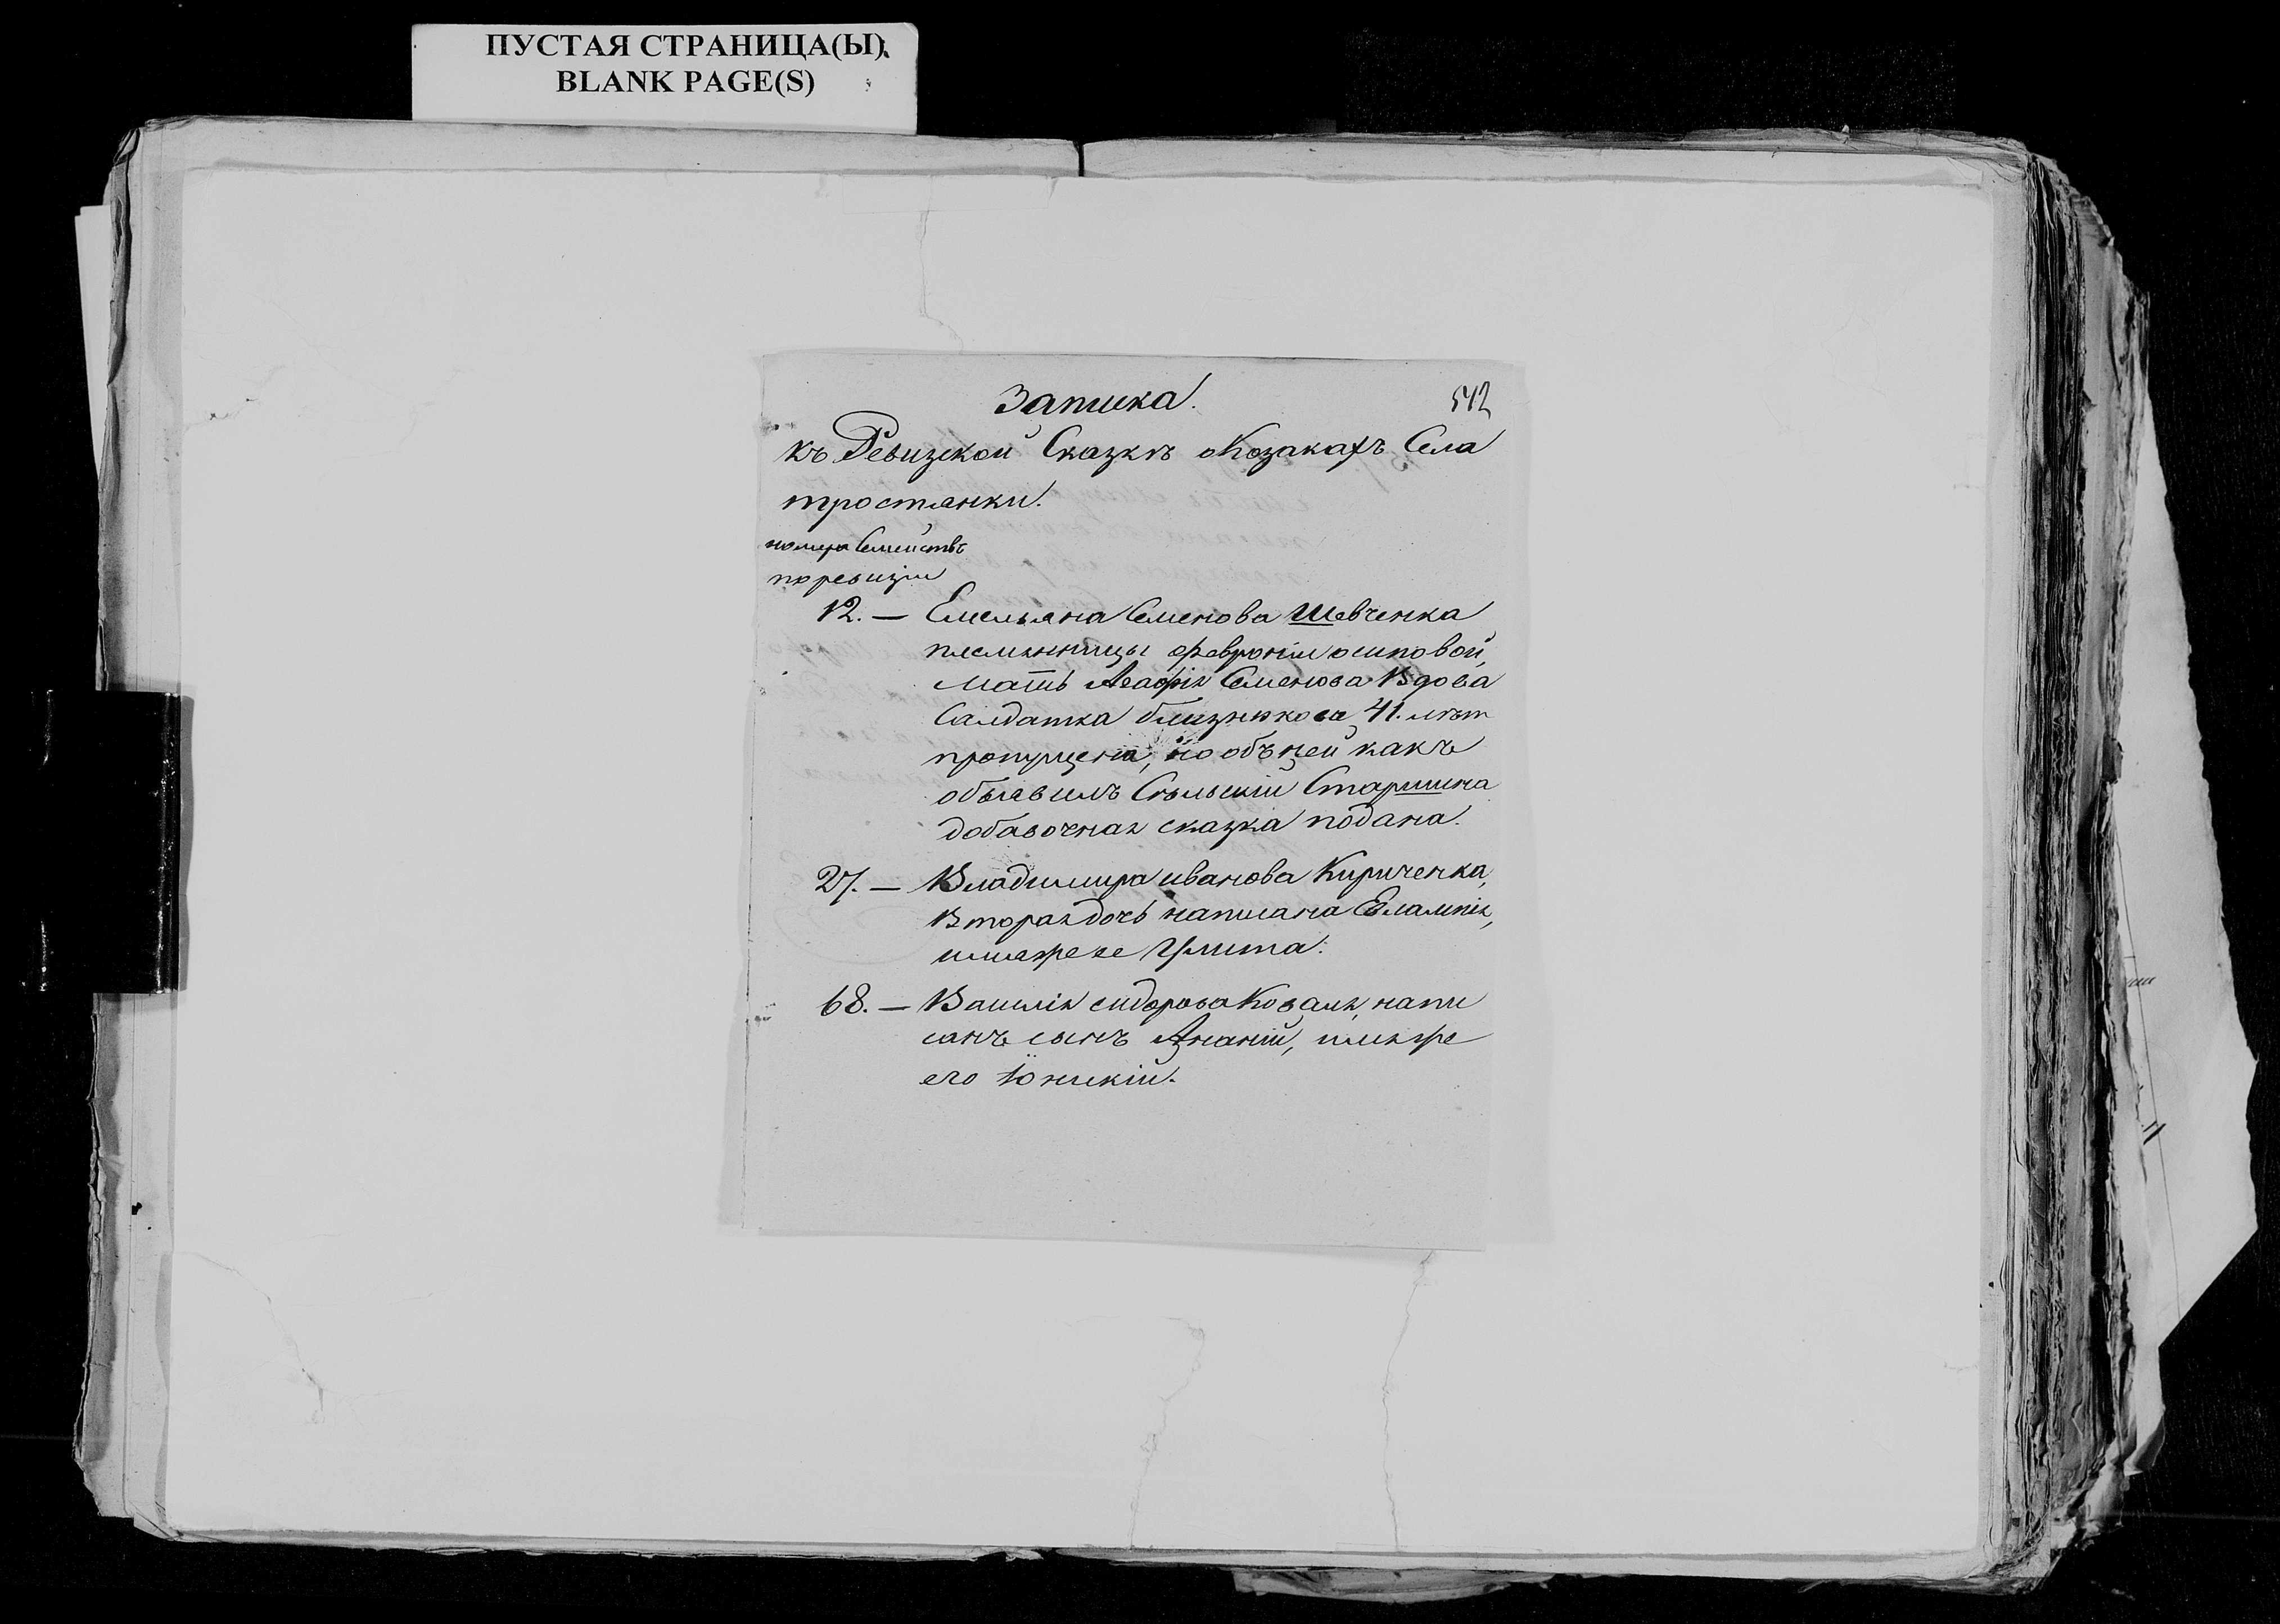 ПУСТАЯ СТРАНИЦА(Ы).
BLANK PAGE(S)
Записка.
542
къ Ревизской Сказкѣ о Козакахъ Села
тростянки.
номера Семействъ
по ревизіи
12. — Емельяна Семенова Шевченка
племянницы февроніи осиповой,
мать Агафія Семенова Вдова
Салдатка близнюкова 41. лѣт
пропущена, но объ ней какъ
объявилъ Сѣльскій Старшина
добавочная сказка подана.
27. — Владимира иванова Кириченка,
Вторая дочь написана Евлампія,
имя же ее Улита.
68. — Василія сидорова Коваля, напи
санъ сынъ Ананій, имя же
его Іоникій.